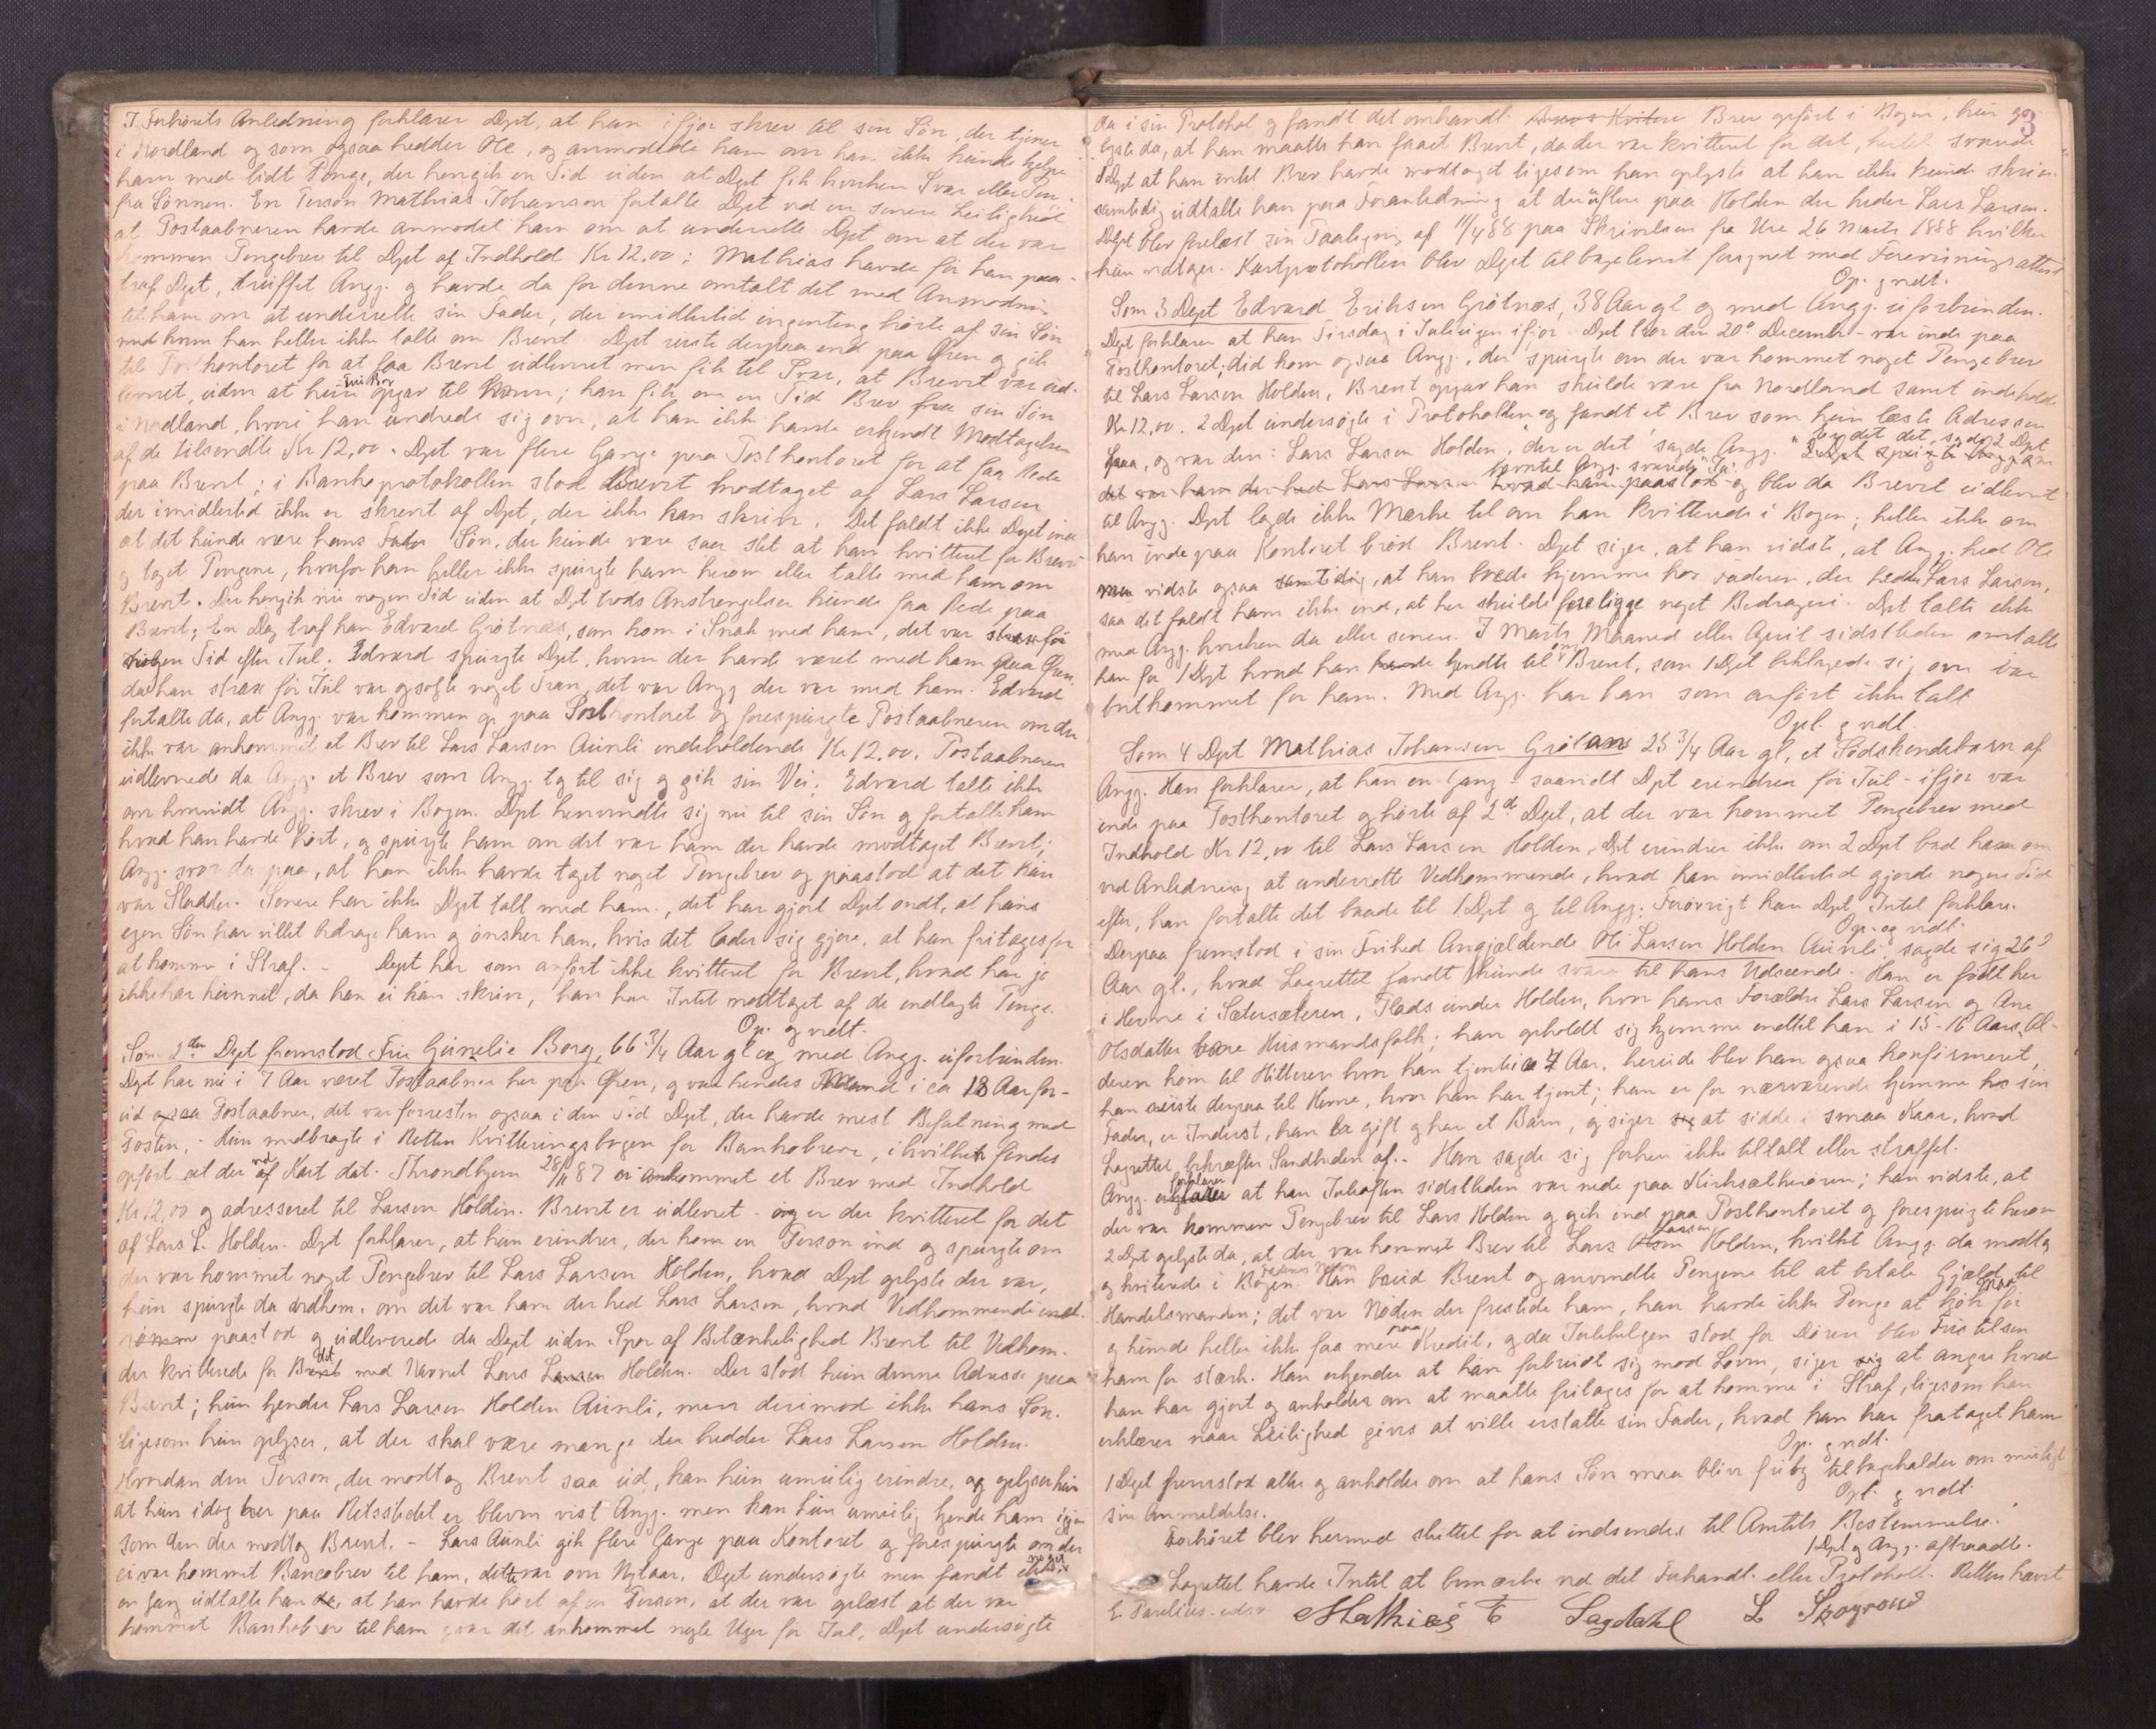 I Forhørets Anledning forklarer Dept, at han ifjor skrev til sin Søn, der tjener
i Nordland og som ogsaa hedder Ole, og anmodede ham om han ikke kunde hjelpe
ham med lidt Penge, der hengik en Tid uden at Dept fik hverken Svar eller Pen-
fra Sønnen. En Person Mathias Johansen fortalte Dept ved en senere Leilighed
at Postaabneren havde anmodet ham om at underrette Dept om at der var
kommen Pengebrev til Dept af Indhold Kr 12,00; Mathias havde før han paa-
traf Dept, truffet Angj. og havde da for denne omtalt det med Anmodning
til ham om at underrette sin Fader, der imidlertid ingenting hørte af sin Søn
med hvem han heller ikke talte om Brevet. Dept reiste derpaa ind paa Øren og gik
til Postkontoret for at faa Brevet udleveret men fik til Svar, at Brevet var ud-
leveret, uden at hun Fru Borg opgav til hvem; han fik om en Tid Brev fra sin Søn
i Nordland, hvori han undrede sig over, at han ikke havde erkjendt Modtagelsen
af de tilsendte Kr 12,00. Dept var flere Gange paa Postkontoret for at faa Rede
paa Brevet; i Bankoprotokollen stod Brevet modtaget af Lars Larsen
der imidlertid ikke er skrevet af Dept, der ikke kan skrive. Det faldt ikke Dept ind
at det kunde være hans Søn, der kunde være saa slet at han kvitteret for Brevet
og taget Pengene, hvorfor han heller ikke spurgte ham herom eller talte med ham om
Brevet. Der hengik nu nogen Tid uden at Dept trods Anstrengelser kunde faa Rede paa
Brevet; En Dag traf han Edvard Grøtnæs, som kom i Snak med ham, det var
nogen Tid efter Jul; Edvard spurgte Dept, hvem der havde været med ham paa Øren
da han strax før Jul var og solgte noget Tran, det var Angj der var med ham. Edvard
fortalte da, at Angj. var kommen op paa Postkontoret og forespurgte Postaabneren om der
ikke var ankommet et Brev til Lars Larsen Aunli indeholdende Kr 12,00. Postaabneren
udleverede da Angj. et Brev som Angj. tog til sig og gik sin Vei; Edvard talte ikke
om hvorvidt Angj. skrev i Bogen. Dept henvendte sig nu til sin Søn og fortalte ham
hvad han havde hørt, og spurgte ham om det var ham der havde modtaget Brevet;
Angj. svarede paa, at han ikke havde taget noget Pengebrev og paastod at det kun
var Sladder. Senere har ikke Dept talt med ham, det har gjort Dept ondt, at hans
egen Søn har villet bedrage ham og ønsker han, hvis det lader sig gjøre, at han fritages for
at komme i Straf. - Dept har som anført ikke kvitteret for Brevet, hvad han jo
ikke har kunnet, da han ei kan skrive, han har Intet modtaget af de indlagte Penge.
Op. og vedt.
Som 2den Dept fremstod Fru Gunelie Borg, 66 3/4 Aar gl og med Angj. uforbunden.
Dept har nu i 7 Aar været Postaabner her paa Øren, og var hendes Mand i ca 18 Aar for-
ud ogsaa Postaabner, det var forresten ogsaa i den Tid Dept, der havde mest Befatning med
Posten. - Hun medbragte i Retten Kvitteringsbogen for Bankobreve, i hvilken findes
opført at der ved Kart dat. Throndhjem 28/11 87 er ankommet et Brev med Indhold
Kr 12,00 og adresseret til Larsen Holden. Brevet er udleveret - og er der kvitteret for det
af Lars L. Holden. Dept forklarer, at hun erindrer, der kom en Person ind og spurgte om
der var kommet noget Pengebrev til Lars Larsen Holden, hvad Dept oplyste der var,
hun spurgte da vedkom. om det var ham der hed Lars Larsen, hvad Vedkommende
paastod og udleverede da Dept uden Spor af Betænkelighed Brevet til Vedkom.
der kvitterede for det med Navnet Lars Larsen Holden. Der stod kun denne Adresse paa
Brevet; hun kjender Lars Larsen Holden Aunli, men derimod ikke hans Søn.
ligesom hun oplyser, at der skal være mange der hedder Lars Larsen Holden.
Hvordan den Person, der modtog Brevet saa ud, kan hun umulig erindre, og oplyser hun
at hun idag her paa Retsstedet er bleven vist Angj. men kan hun umulig kjende ham igjen
som den der modtog Brevet. - Lars Aunli gik flere Gange paa Kontoret og forespurgte om der
ei var kommet Bancobrev til ham, dette var over Nytaar, Dept undersøgte men fandt noget
en Gang udtalte han, at han havde hørt af en Person, at der var oplæst at der var
kommet Bankobrev til ham var det ankommet nogle Uger før Jul, Dept undersøgte
3
da i sin Protokol og fandt det omhandl. Brev opført i Bogen, hun op-
lyste da, at han maatte have faaet Brevet, da der var kvitteret for det, svarede
1 Dept at han intet Brev havde modtaget ligesom han oplyste at han ikke kunde skrive.
samtidig udtalte han paa Foranledning at der er flere paa Holden der heder Lars Larsen.
Dept blev forelæst sin Paategning af 11/4 88 paa Skrivelsen fra Ure 26 Marts 1888 hvilken
hun vedtager. Kartprotokollen blev Dept tilbageleveret forsynet med Forevisningsattest
Op. og vedt.
Som 3 Dept Edvard Eriksen Grøtnæs, 38 Aar gl og med Angj. uforbunden.
Dept forklarer at han Tirsdag i Juleugen ifjor - Dept tror den 20de December - var inde paa
Postkontoret; did kom ogsaa Angj., der spurgte om der var kommet noget Pengebrev
til Lars Larsen Holden, Brevet opgav han skulde være fra Nordland samt indeholde
Kr 12,00. 2 Dept undersøgte i Protokollen og fandt et Brev som hun læste Adressen
paa, og var den: Lars Larsen Holden, "der er det" sagde Angj. "er det det, sagde 2 Dept
hvortil Angj. svarede "Ja" og blev da Brevet udleveret
til Angj. Dept lagde ikke Mærke til om han kvitterede i Bogen; heller ikke om
han inde paa Kontoret brød Brevet. Dept siger, at han vidste, at Angj. hed Ole
men vidste ogsaa, at han boede hjemme hos Faderen, der hedder Lars Larsen,
saa det faldt ham ikke ind, at her skulde foreligge noget Bedrageri. Dept talte ikke
med Angj. hverken da eller senere. I Marts Maaned eller April sidstleden omtalte
han for 1 Dept hvad han kjendte til om Brevet, som 1 Dept beklagede sig over var
bortkommet for ham. Med Angj. har han som anført ikke talt
Opl. og vedt.
Som 4 Dept Mathias Johansen Grøtan 25 3/4 Aar gl, et Sødskendebarn af
Angj. Han forklarer, at han en Gang - saavidt Dept erindrer før Jul - ifjor var
inde paa Postkontoret og hørte af 2de Dept, at der var kommet Pengebrev med
Indhold Kr 12,00 til Lars Larsen Holden, Dept erindrer ikke om 2 Dept bad ham om
ved Anledning at underrette Vedkommende, hvad han imidlertid gjorde nogen Tid
efter, han fortalte det baade til 1 Dept og til Angj. Forøvrigt kan Dept Intet forklare.
Op. og vedt.
Derpaa fremstod i sin Frihed Angjældende Ole Larsen Holden Aunli, sagde sig 26
Aar gl., hvad Lagrettet fandt kunde svare til hans Udseende. Han er født her
i Hevne i Sætersæteren, Plads under Holden, hvor hans Forældre Lars Larsen og Ane
Olsdatter vare Husmandsfolk; han opholdt sig hjemme indtil han i 15-16 Aars Al-
deren kom til Hitteren hvor han tjente i 7 Aar, herude blev han ogsaa konfirmeret,
han reiste derpaa til Hevne, hvor han har tjent; han er for nærværende hjemme hos sin
Fader, er Inderst, han er gift og har et Barn, og siger at sidde i smaa Kaar, hvad
Lagrettet bekræfter Sandheden af. - Han sagde sig forhen ikke tiltalt eller straffet.
Angj. forklarer at han Juleaften sidstleden var nede paa Kirksæterøren; han vidste, at
der var kommen Pengebrev til Lars Holden og gik ind paa Postkontoret og forespurgte herom
2 Dept oplyste da, at der var kommet Brev til Lars Larsen Holden, hvilket Angj. da modtog
og kviterede i Bogen Faderens Navn. Han brød Brevet og anvendte Pengene til at betale Gjæld til
Handelsmanden; det var Nøden der fristede ham, han havde ikke Penge at kjøbe Mad for
og kunde heller ikke faa mere paa Kredit, og da Julehelgen stod for Døren blev Fristelsen
ham for stærk. Han erkjender at han forbrudt sig mod Loven, siger at angre hvad
han har gjort og anholder om at maatte fritages for at komme i Straf, ligesom han
erklærer naar Leilighed gives at ville erstatte sin Fader, hvad han har frataget ham
Op. og vedt.
1 Dept fremstod atter og anholder om at hans Søn maa blive fri og tilbagekalder om muligt
sin Anmeldelse.
Opl. og vedt.
Forhøret blev hermed sluttet for at indsendes til Amtets Bestemmelse.
1 Dept og Angj. aftraadte.
Lagrettet havde Intet at bemærke ved det Forhandl. eller Protokoll. Retten hævet
E. Parelius Mathias E Sagdahl L Skogrand